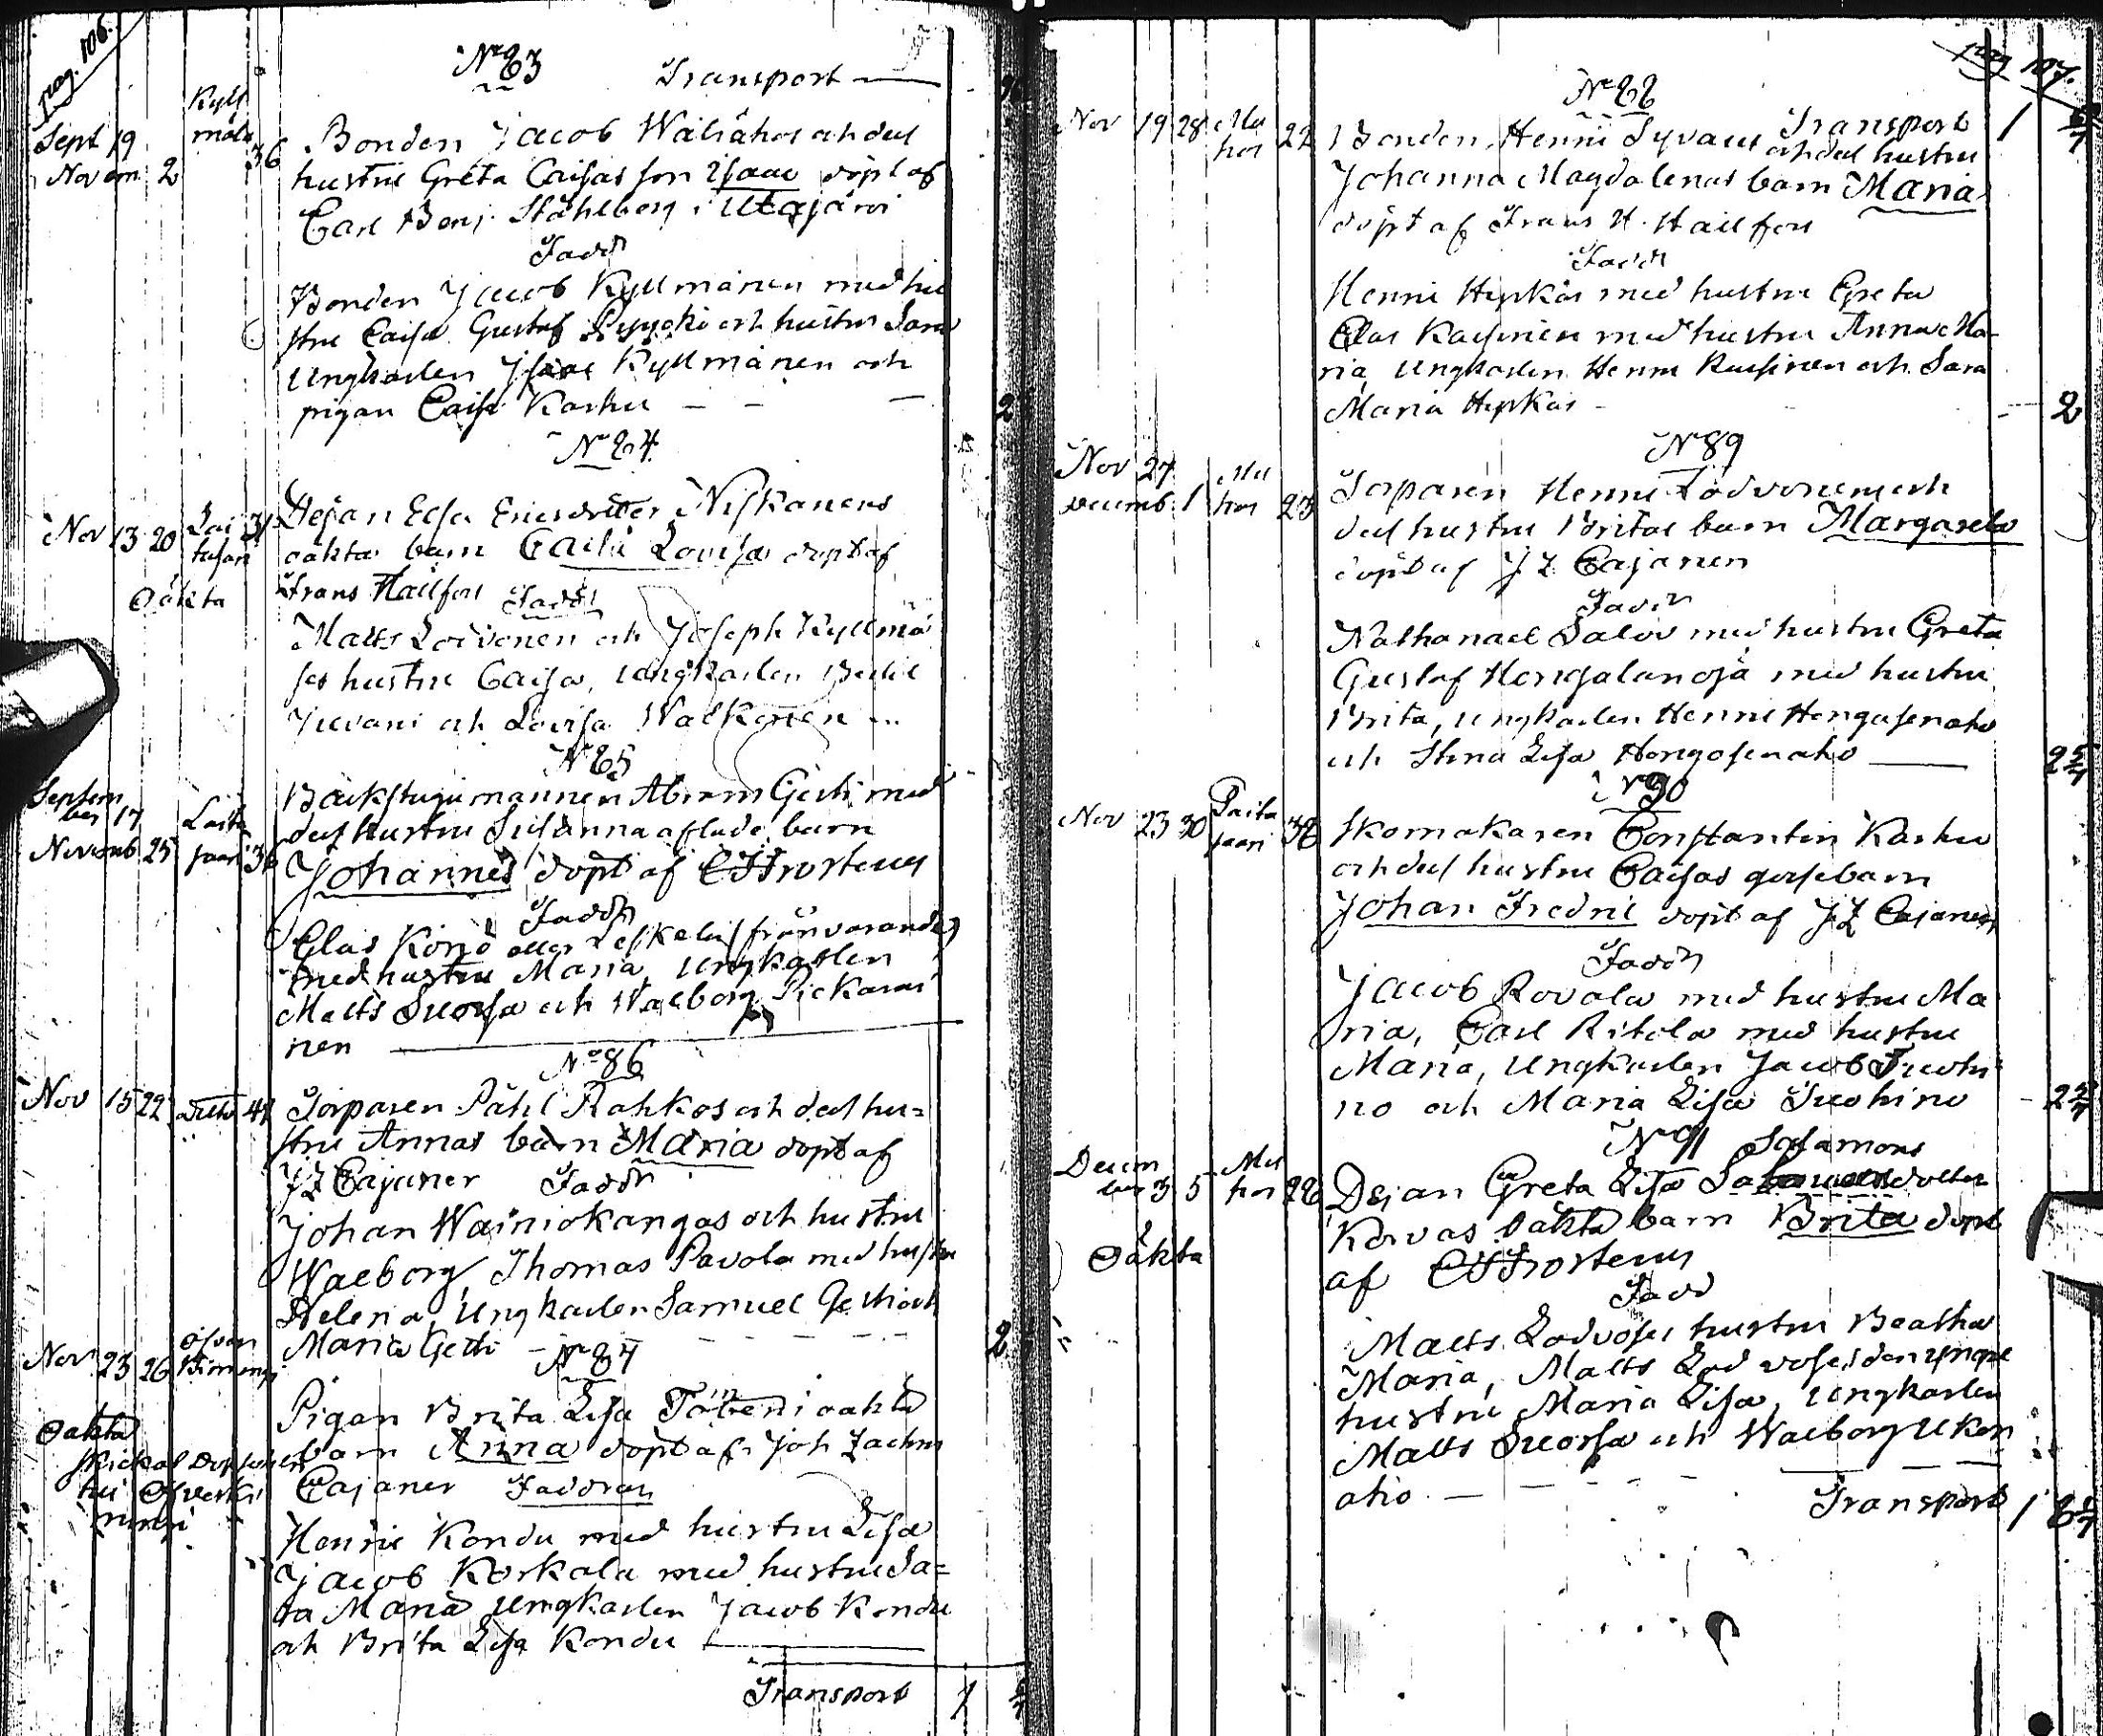 pag. 106.
No 83
Transport
Kyll
mälä
Sept 19
Novem 2
36
Bonden Jacob Wäliahos och dess
hustru Greta Caisas son Isaac döpt af
Carl Benj. Ståhlberg i Utajärvi
Fadd
Bonden Jacob Kyllmänen med hu
stru Caisa Gustaf och hustru Sara
Ungkarlen Isaac Kyllmänen och
pigan Caisa Karhu
2
No 84
Nov 13 20
31
Oäkta
Dejan Elsa Ericsdotter Niskanens
oäkta barn Caisa Lovisa döpt af
Frans Hällfors Fadd
Matts Loivonen och Joseph Kyllmä
ses hustru Caisa, ungkarlen
Juvani och Lovisa Walkonen
No 85
Septem
ber 17
Novemb 25
Laita
saari 36
Backstugumannen Abram Gästi med
dess hustru Susanna aflade barn
Johannes döpt af C F Frosterus
Faddr
Elias Könö eller Leskelä (frånvarande)
med hustru Maria, Ungkarlen
Matts Suorsa och Walborg Pickarai
nen
No 86
Nov 15 22 ditto 41
Torparen Påhl Rahkos och dess hu=
stru Annas barn Maria döpt af
J Z Cajaner Faddr
Johan Wainiokangas och hustru
Walborg Thomas Pavola med hustru
Helena, Ungkarlen Samuel Gesti och
Maria Gesti
2
No 87
Nov 23 26
Oäkta
Pigan Brita Lisa oäkta
barn Anna döpt af Joh Zachris
Cajaner Faddran
Henric Kondu med hustru Lisa
Jacob Korkala med hustru Sa=
ra Maria Ungkarlen Jacob Kondu
och Brita Lisa Kondu
Transport 1
pag 107.
No 88
Transport 1
Nov 19 28 Mu
hos 22
Bonden Henric Syväus och dess hustru
Johanna Magdalenas barn Maria
döpt af Frans H. Hällfors
Faddr
Henric Hepkäs med hustru Greta
Elias Kaihinen med hustru Anna Ma-
ria, Ungkarlen Henric och Sara
Maria Hepkäs
2
No 89
Nov 27
Decemb. 1
Mu
hos 23
Torparen Henric Lodvonen och
dess hustru Britas barn Margareta
döpt af J Z Cajaner
Faddr
Nathanael Salov med hustru Greta
Gustaf Hongalanoja med hustru
Brita, ungkarlen Henric Hongasenaho
och Stina Lisa Hongasenaho
No 90
Nov 23 30
Laita
saari 38
Skomakaren Constantin Karhu
och dess hustru Caisas gossebarn
Johan Fredric döpt af J Z Cajaner
Faddr
Jacob Rovala med hustru Ma
ria, Carl Ritola med hustru
Maria, Ungkarlen Jacob Suohi
no och Maria Lisa Suohino
No 91 Salamons
Decem
ber 3 5
Mu
hos 26
Oäkta
Dejan Greta Lisa dotter
Korvas oäkta barn Brita döpt
af C F Frosterus
Fadd
Matts Lodvoses hustru Beatha
Maria, Matts Lodvoses den yngre
hustru Maria Lisa, Ungkarlen
Matts Suorsa och Walborg Ukon
aho
Transport 1